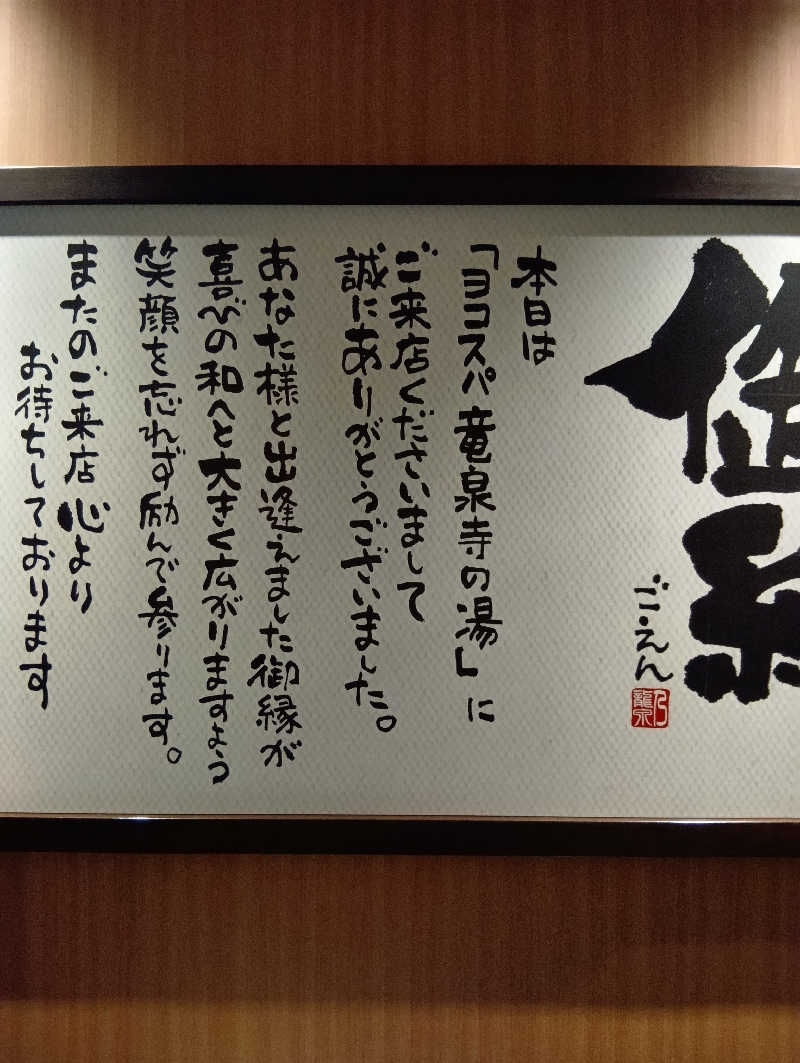 ご・えん
本日は
「ヨコスパ竜泉寺の湯」に
ご来店くださいまして
誠にありがとうございました。
あなた様と出逢えました御縁が
喜びの和へと大きく広がりますよう
笑顔を忘れず励んで参ります。
またのご来店心より
お待ちしております